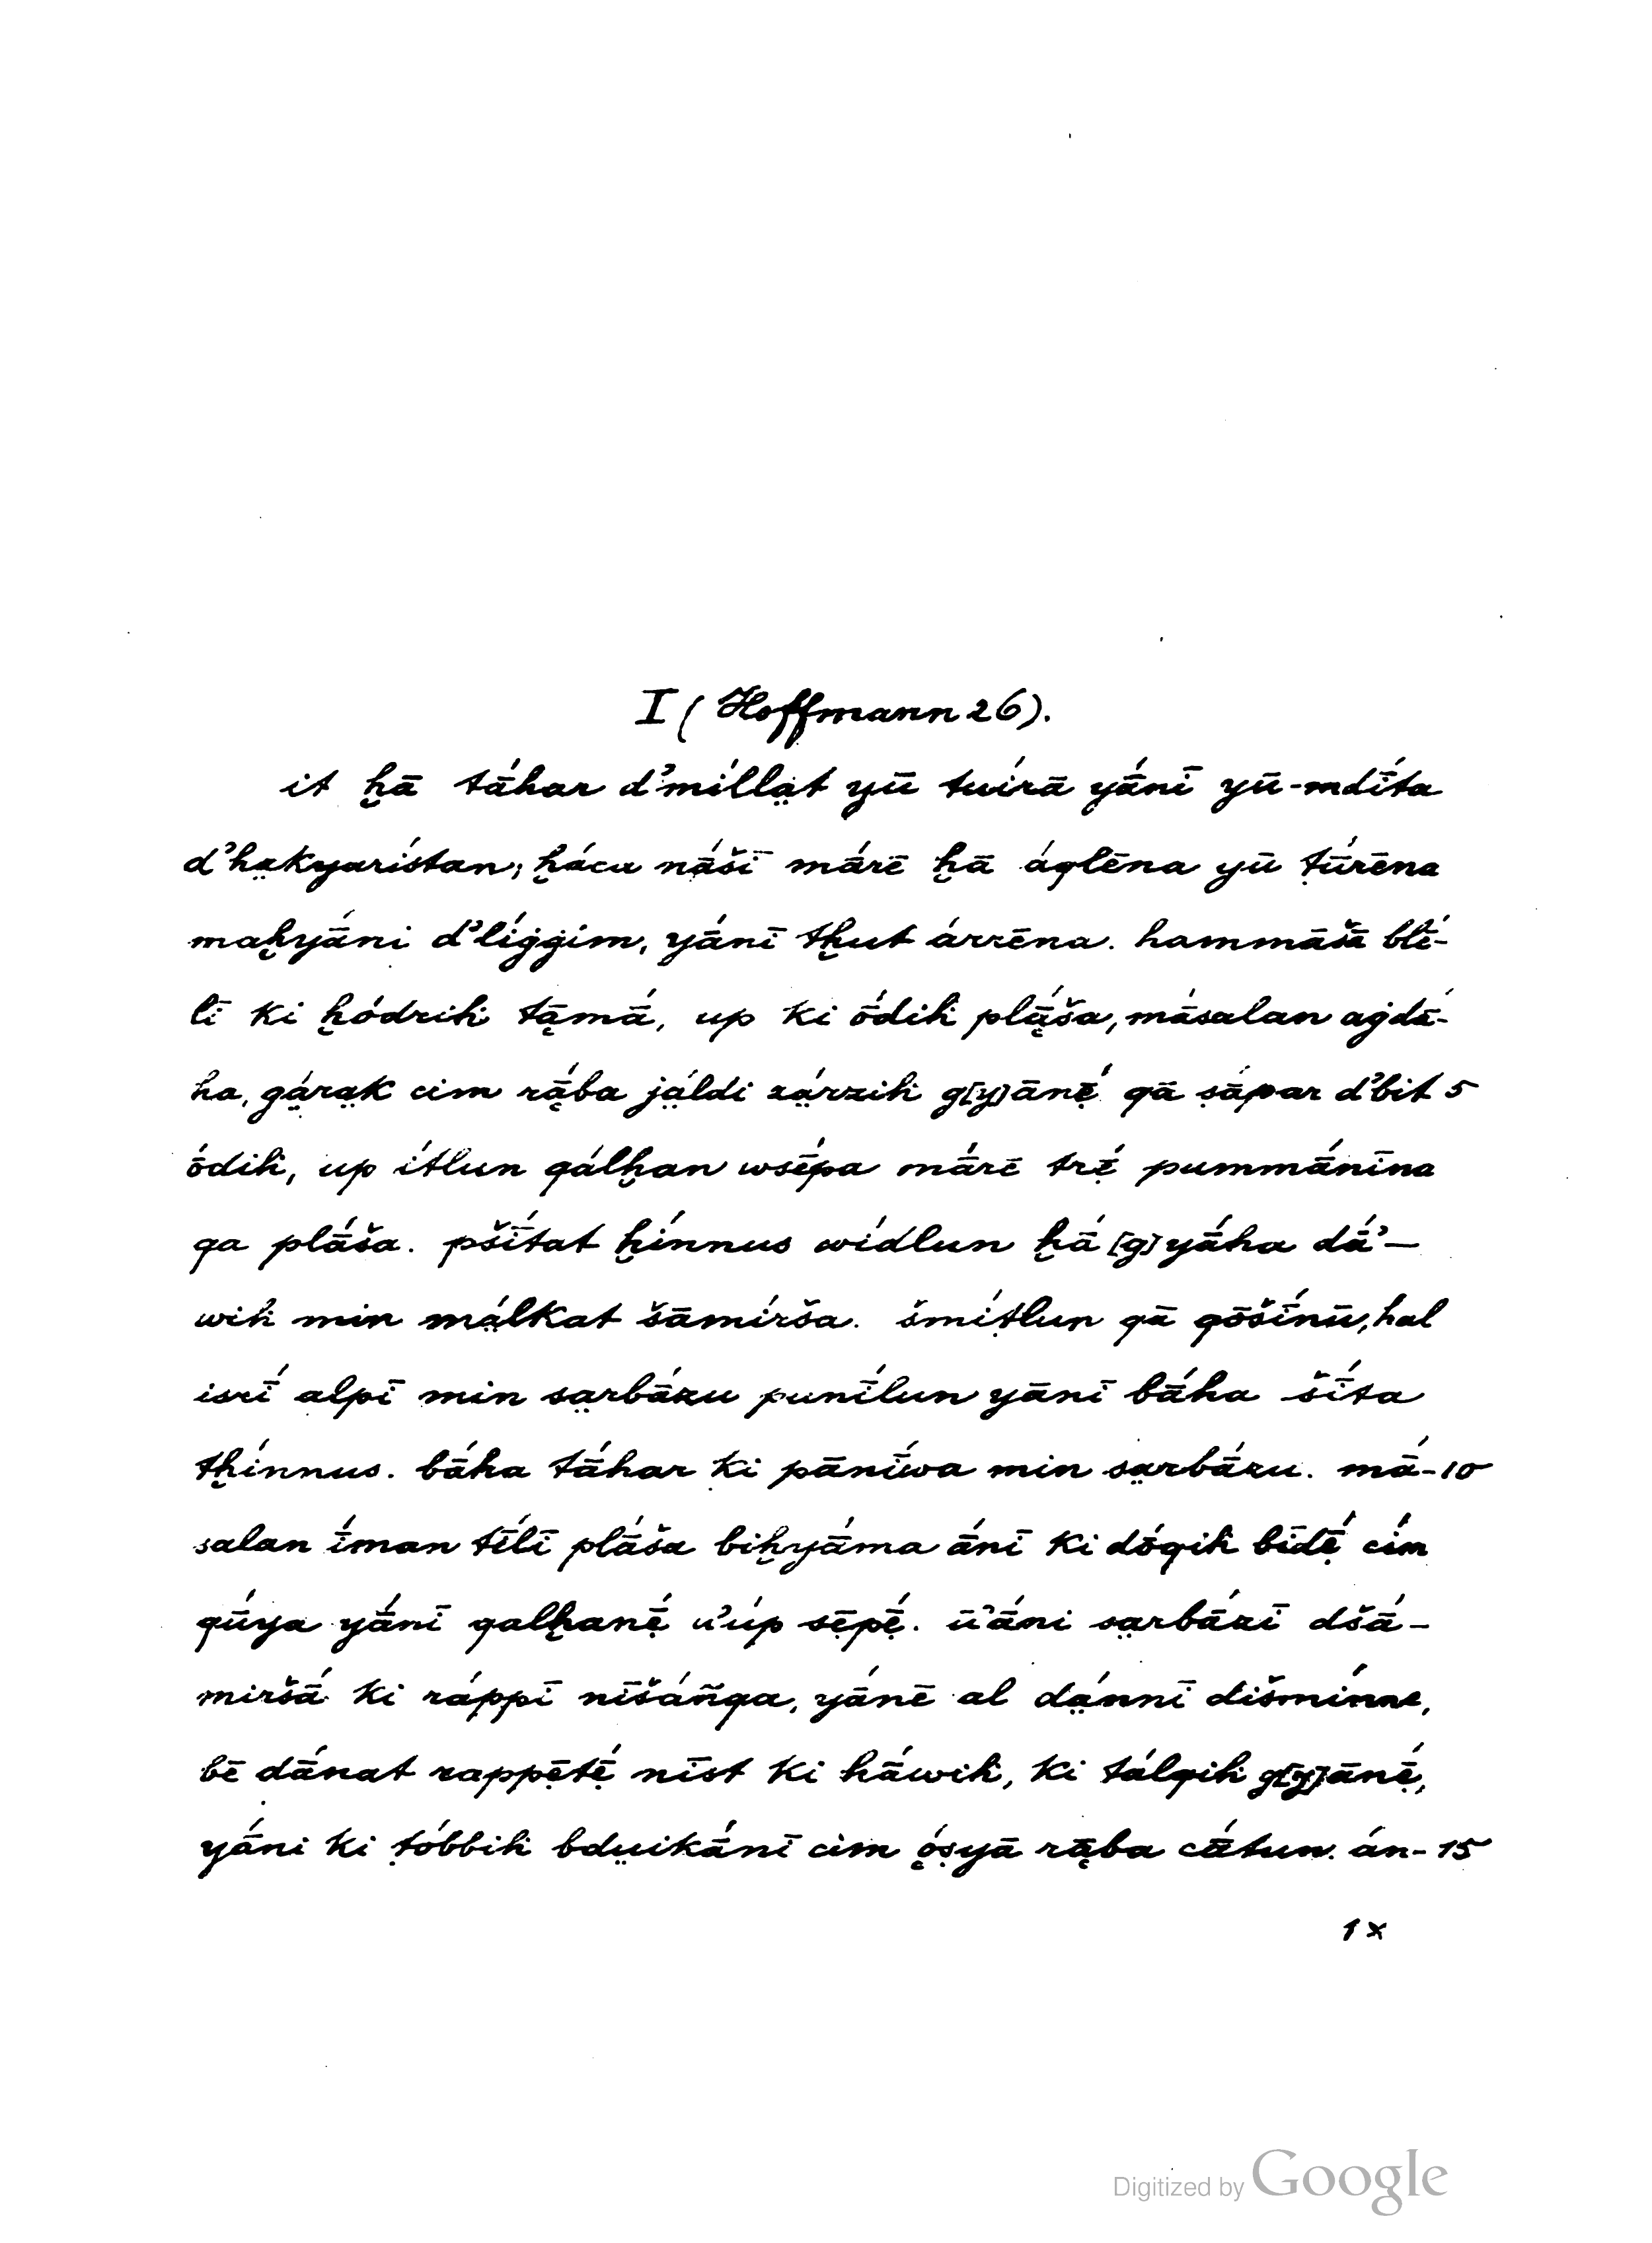 I (Hoffmann 26).
it ḫā tā́har d᾽míllạ̈t yū twírā yā́nī yū-mdī́ta
d᾽hạ̈kyarístan; ḫácu nā́šī mā́rē ḫā áqlēna yū ṭū́rēna
maḫyā́ni d᾽líġġim, yā́nī tḫut árrēna. hammā́šā blé-
lī ki ḫódrih tāmā́, up ki ṓdih plā́ša, mā́salan aġdā́-
ha, gạ̈́rạ̈k cim rā́ba jạ̈́ldi zạ̈́rzih g[y]ānḗ qā ṣā́par d᾽bit 5
ṓdih, up ítlun qálḫan wsḗpa mā́rē trẹ́ pummā́nīna
qa plā́ša. pšī́tat ḫínnus wídlun ḫā́ [g]yā́ha dā́᾽-
wih min mạ̈́lkat šāmírša. šmíṭlun qā qōšī́nū, hal
isrī́ alpī min sạ̈rbā́zu punī́lun yānī bā́ha šī́ta
tḫínnus. bā́ha tā́har ki pānī́wa min sạ̈rbā́zu. mā́- 10
salan ī́man tḗlī plā́ša biḫyā́ma ā́nī ki dṓqih bīdḗ cím
qū́ya yā́nī qalḫanẹ̄́ u᾽úp sēpẹ̄́. ū᾽ā́ni sạ̈rbā́zī dšā́-
miršā́ ki ráppī nīšáñqa, yā́nē al dạ̈́nnī dišmínne,
bē dā́nat rappẹ̄tẹ̄́ nīst ki hā́wih, ki tálqih g[y]ānẹ̄́,
yā́ni ki ṭóbbih bdụ̈ikā́nī cim ọ́ṣyā rāba cā́tun. án- 15
1 x
Digitized by Google